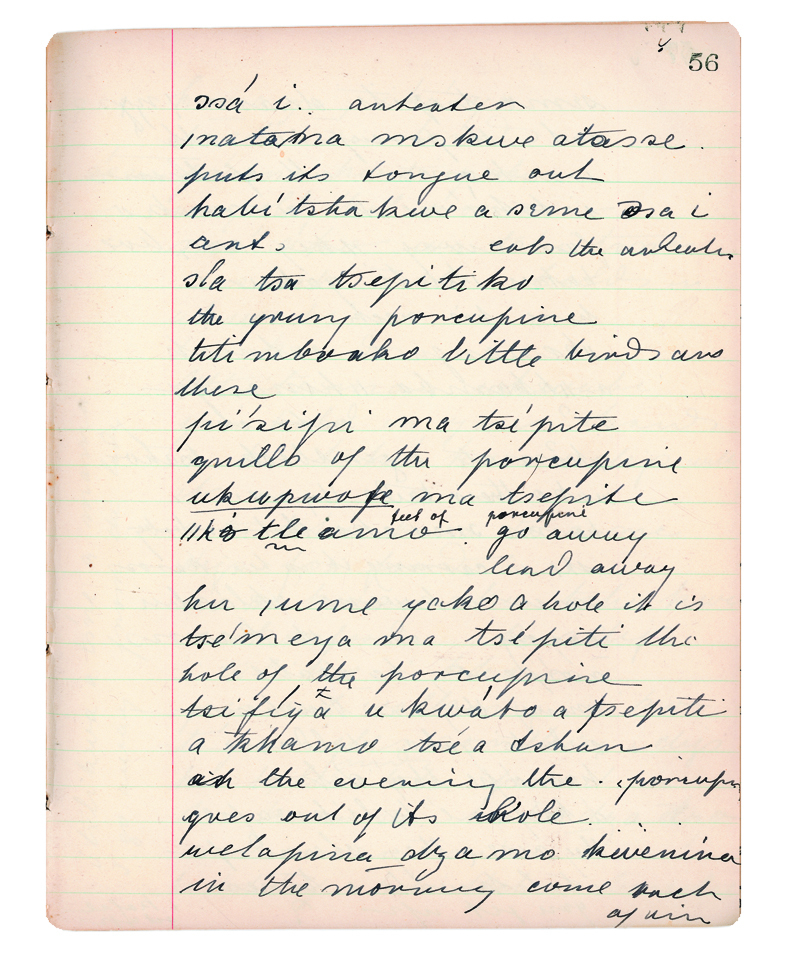 56
ssá i. anteater
/natama mskwe atasse.
puts its tongue out
habi'tsha kwe a seme sa i
ants eats the anteater
sla tsa tsepitiko
the young porcupine
titi mboako little birds are
these
pi'sipi ma tsépite
quills of the porcupine
ukupwofe ma tsepite
feet of porcupine
//ko tleamo go away
lead away
hu /ume yako a hole it is
tsé'meya ma tsépiti the
hole of the porcupine
tsifiya u kwáto a tsepiti
a khamo tsé a tshau
in the evening the porcupine
goes out of its hole.
welapina dza mo kwenina
in the morning come back
again